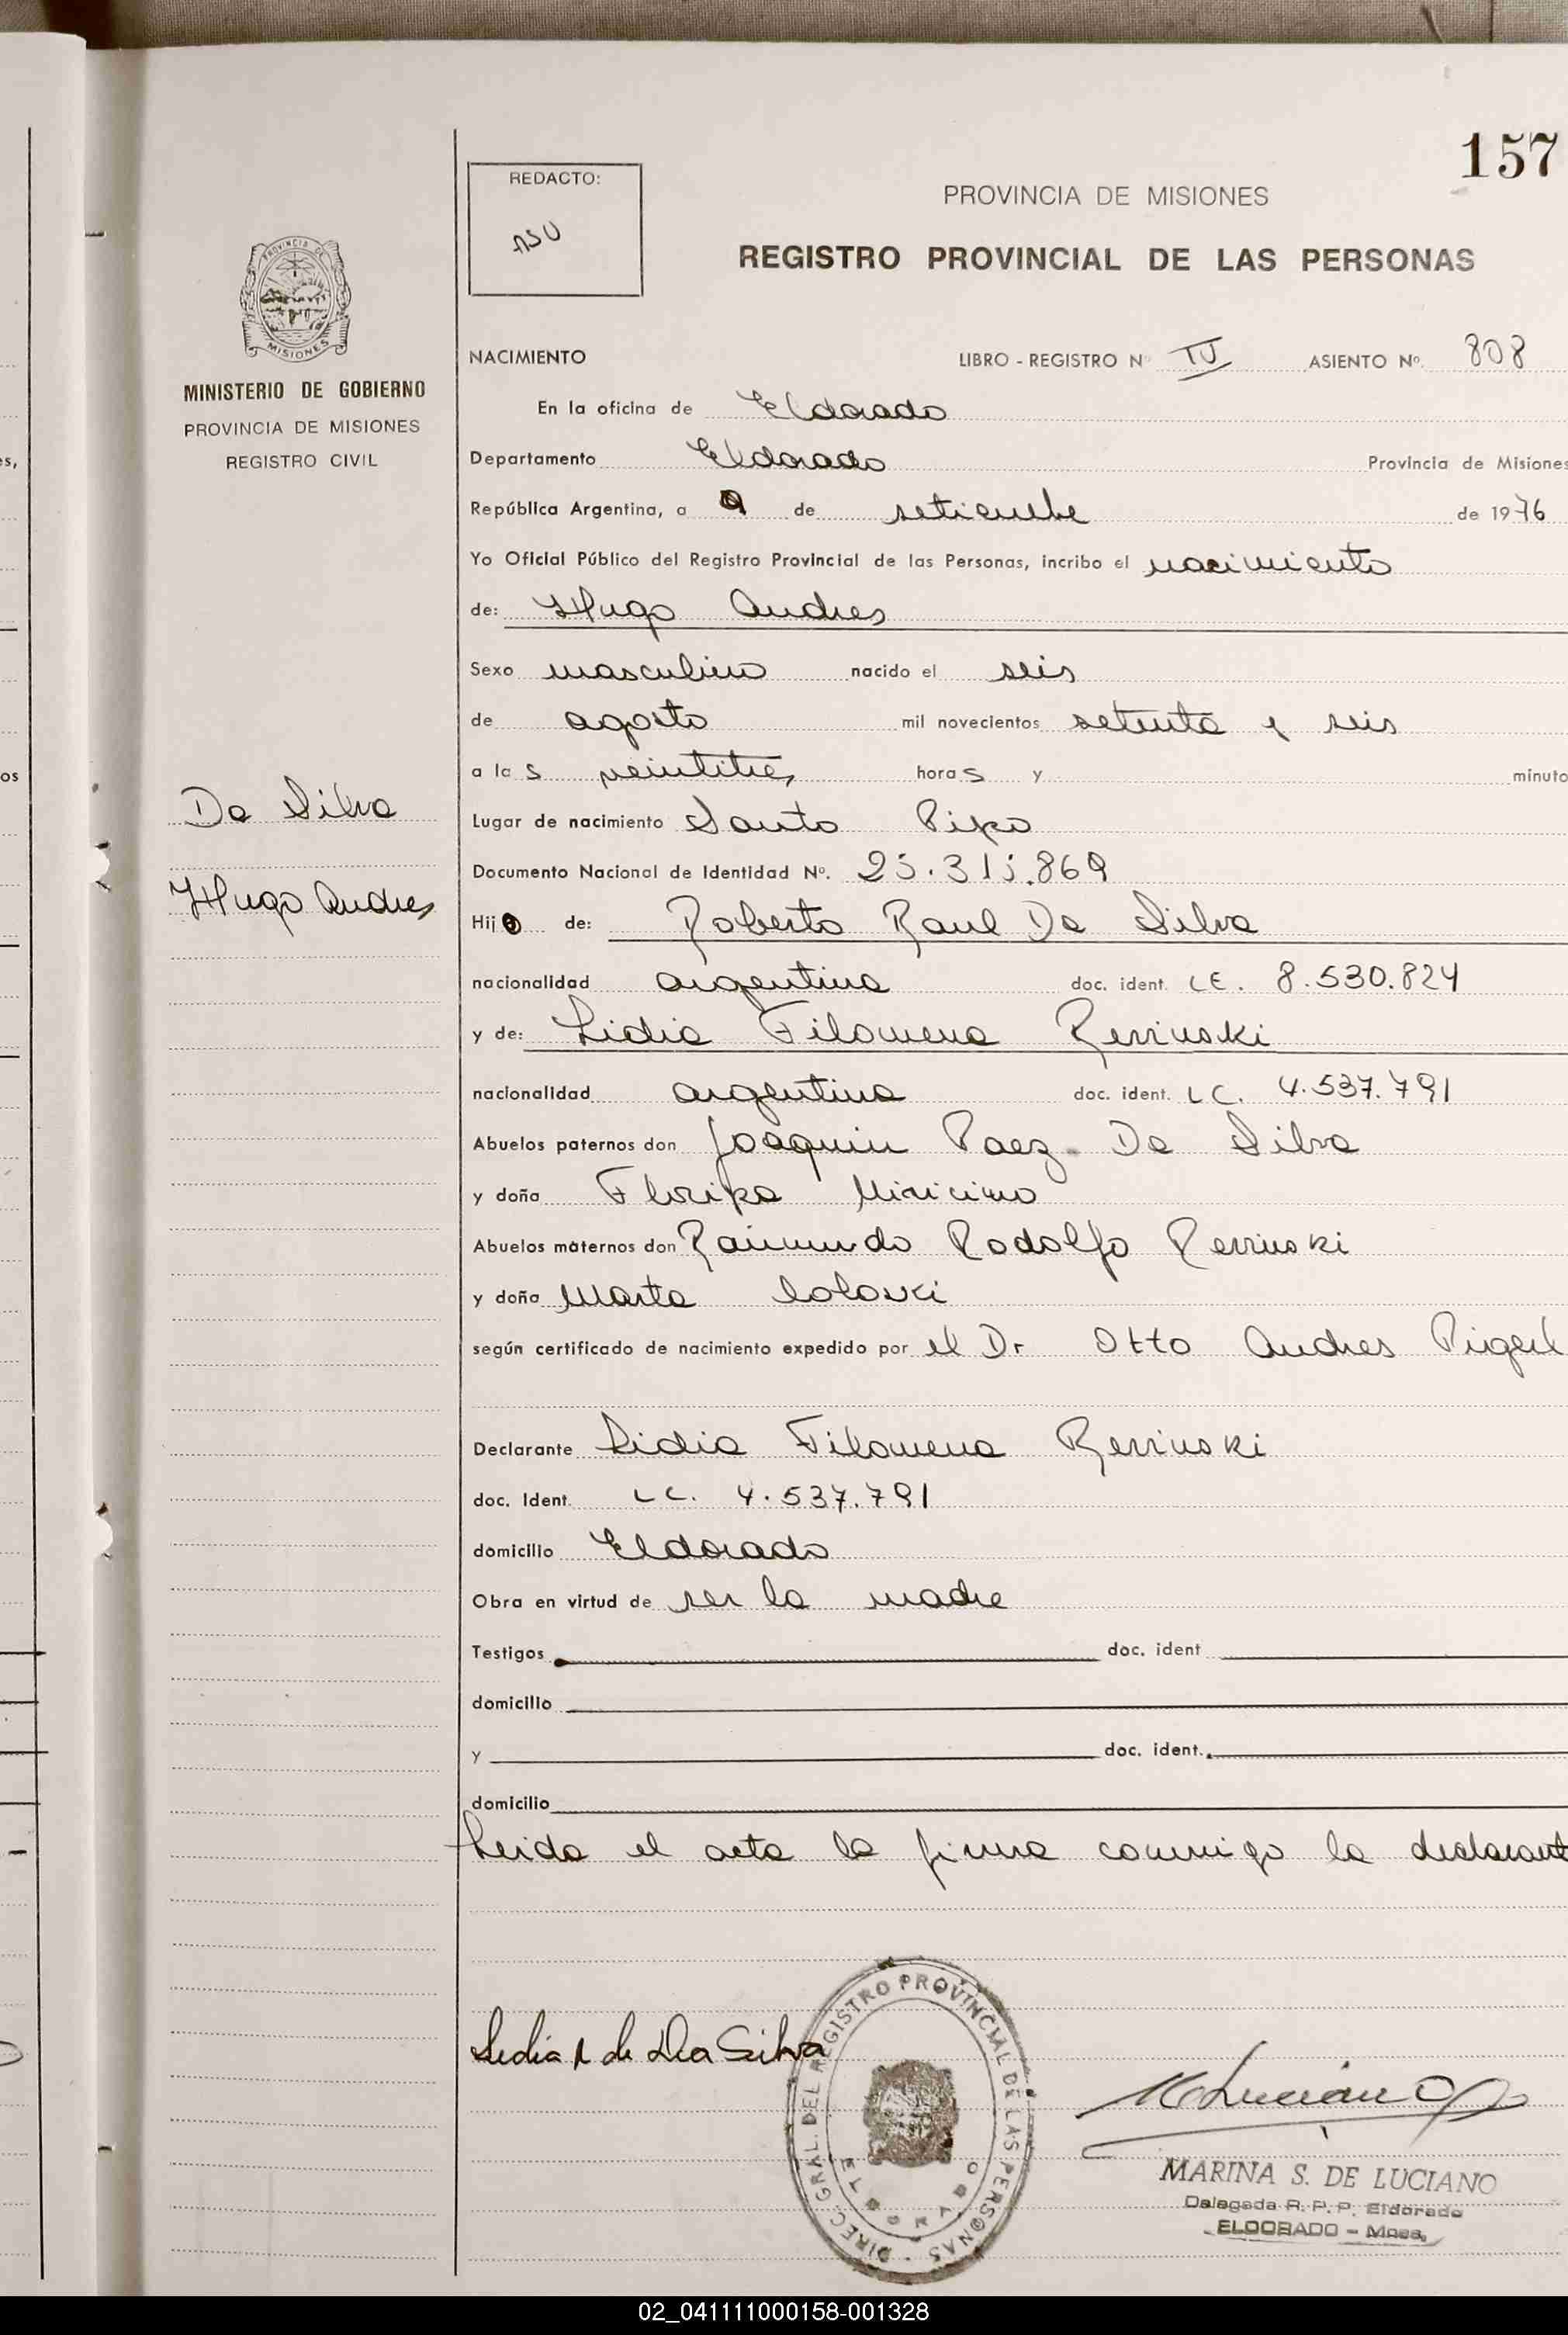 157
REDACTO:
PROVINCIA DE MISIONES
REGISTRO PROVINCIAL DE LAS PERSONAS
MISIONES
MINISTERIO DE GOBIERNO
PROVINCIA DE MISIONES
REGISTRO CIVIL
NACIMIENTO LIBRO - REGISTRO Nº ASIENTO Nº. 808
En la oficina de Eldorado
Departamento Eldorado Provincia de Misiones
República Argentina, a 9 de setiembre de 1976
Yo Oficial Público del Registro Provincial de las Personas, incribo el nacimiento
de: Hugo Andres
Sexo masculino nacido el seis
de agosto mil novecientos setenta y seis
a las veintitres horas y minuto
Da Silva
Lugar de nacimiento Santo Pipo
Documento Nacional de Identidad Nº. 25.315.869
Hugo Andres
Hijo de: Roberto Raul Da Silva
nacionalidad argentina doc. ident. LE. 8.530.824
y de: Lidia Filomena
nacionalidad argentina doc. ident. LC. 4.537.791
Abuelos paternos don Joaquin Paez Da Silva
y doña Floripa
Abuelos maternos don Raimundo Rodolfo
y doña Marta
según certificado de nacimiento expedido por el Dr Otto Andres
Declarante Lidia Filomena
doc. Ident. LC. 4.537.791
domicilio Eldorado
Obra en virtud de ser la madre
Testigos doc. ident
domicilio
y doc. ident.
domicilio
Leida el acta la firma conmigo la declarant
Lidia R de Da Silva
DIREC. GRAL. DEL REGISTRO PROVINCIAL DE LAS PERSONAS
ELDORADO
M Luciano
MARINA S. DE LUCIANO
Delegada R. P. P. Eldorado
ELDORADO - Mnes.
02_041111000158-001328